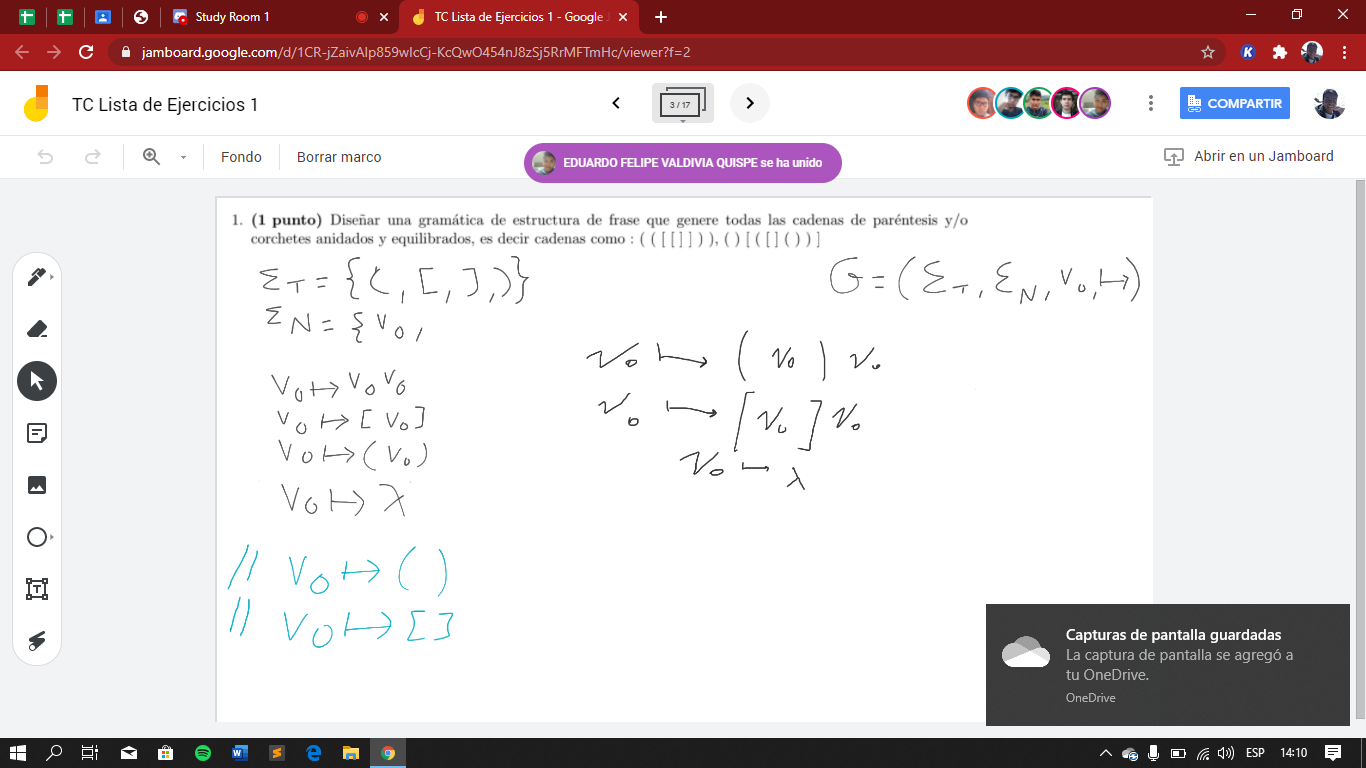 Study Room 1
TC Lista de Ejercicios 1 - Google J
jamboard.google.com/d/1CR-jZaivAlp859wIcCj-KcQwO454nJ8zSj5RrMFTmHc/viewer?f=2
TC Lista de Ejercicios 1
3 / 17
COMPARTIR
Fondo
Borrar marco
EDUARDO FELIPE VALDIVIA QUISPE se ha unido
Abrir en un Jamboard
1. (1 punto) Diseñar una gramática de estructura de frase que genere todas las cadenas de paréntesis y/o
corchetes anidados y equilibrados, es decir cadenas como : ( ( [ [ ] ] ) ), ( ) [ ( [ ] ( ) ) ]
Σ_T = { (, [, ], ) }
G = (Σ_T, Σ_N, v₀, ↦)
Σ_N = { v₀,
v₀ ↦ v₀ v₀
v₀ ↦ [ v₀ ]
v₀ ↦ ( v₀ )
v₀ ↦ λ
v₀ ↦ ( v₀ ) v₀
v₀ ↦ [ v₀ ] v₀
v₀ ↦ λ
// v₀ ↦ ( )
// v₀ ↦ [ ]
Capturas de pantalla guardadas
La captura de pantalla se agregó a
tu OneDrive.
OneDrive
ESP
14:10